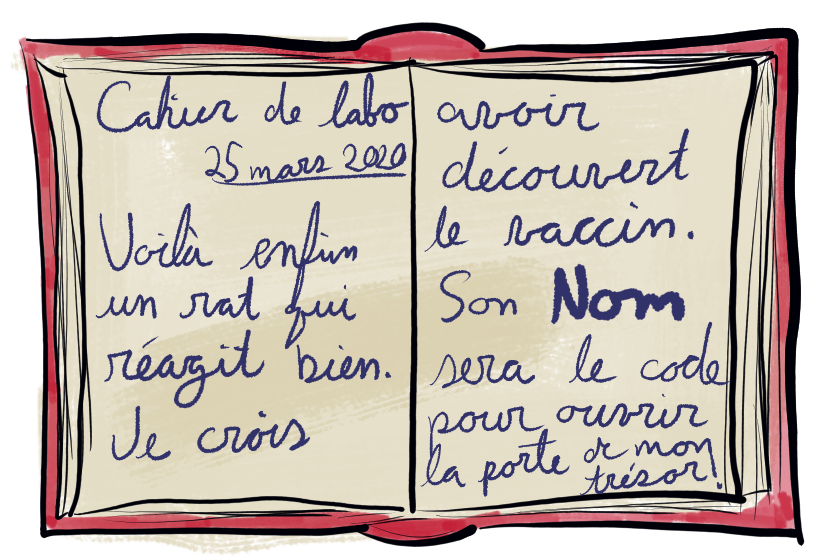 Cahier de labo
25 mars 2020
Voilà enfin
un rat qui
réagit bien.
Je crois
avoir
découvert
le vaccin.
Son Nom
sera le code
pour ouvrir
la porte de mon
trésor!